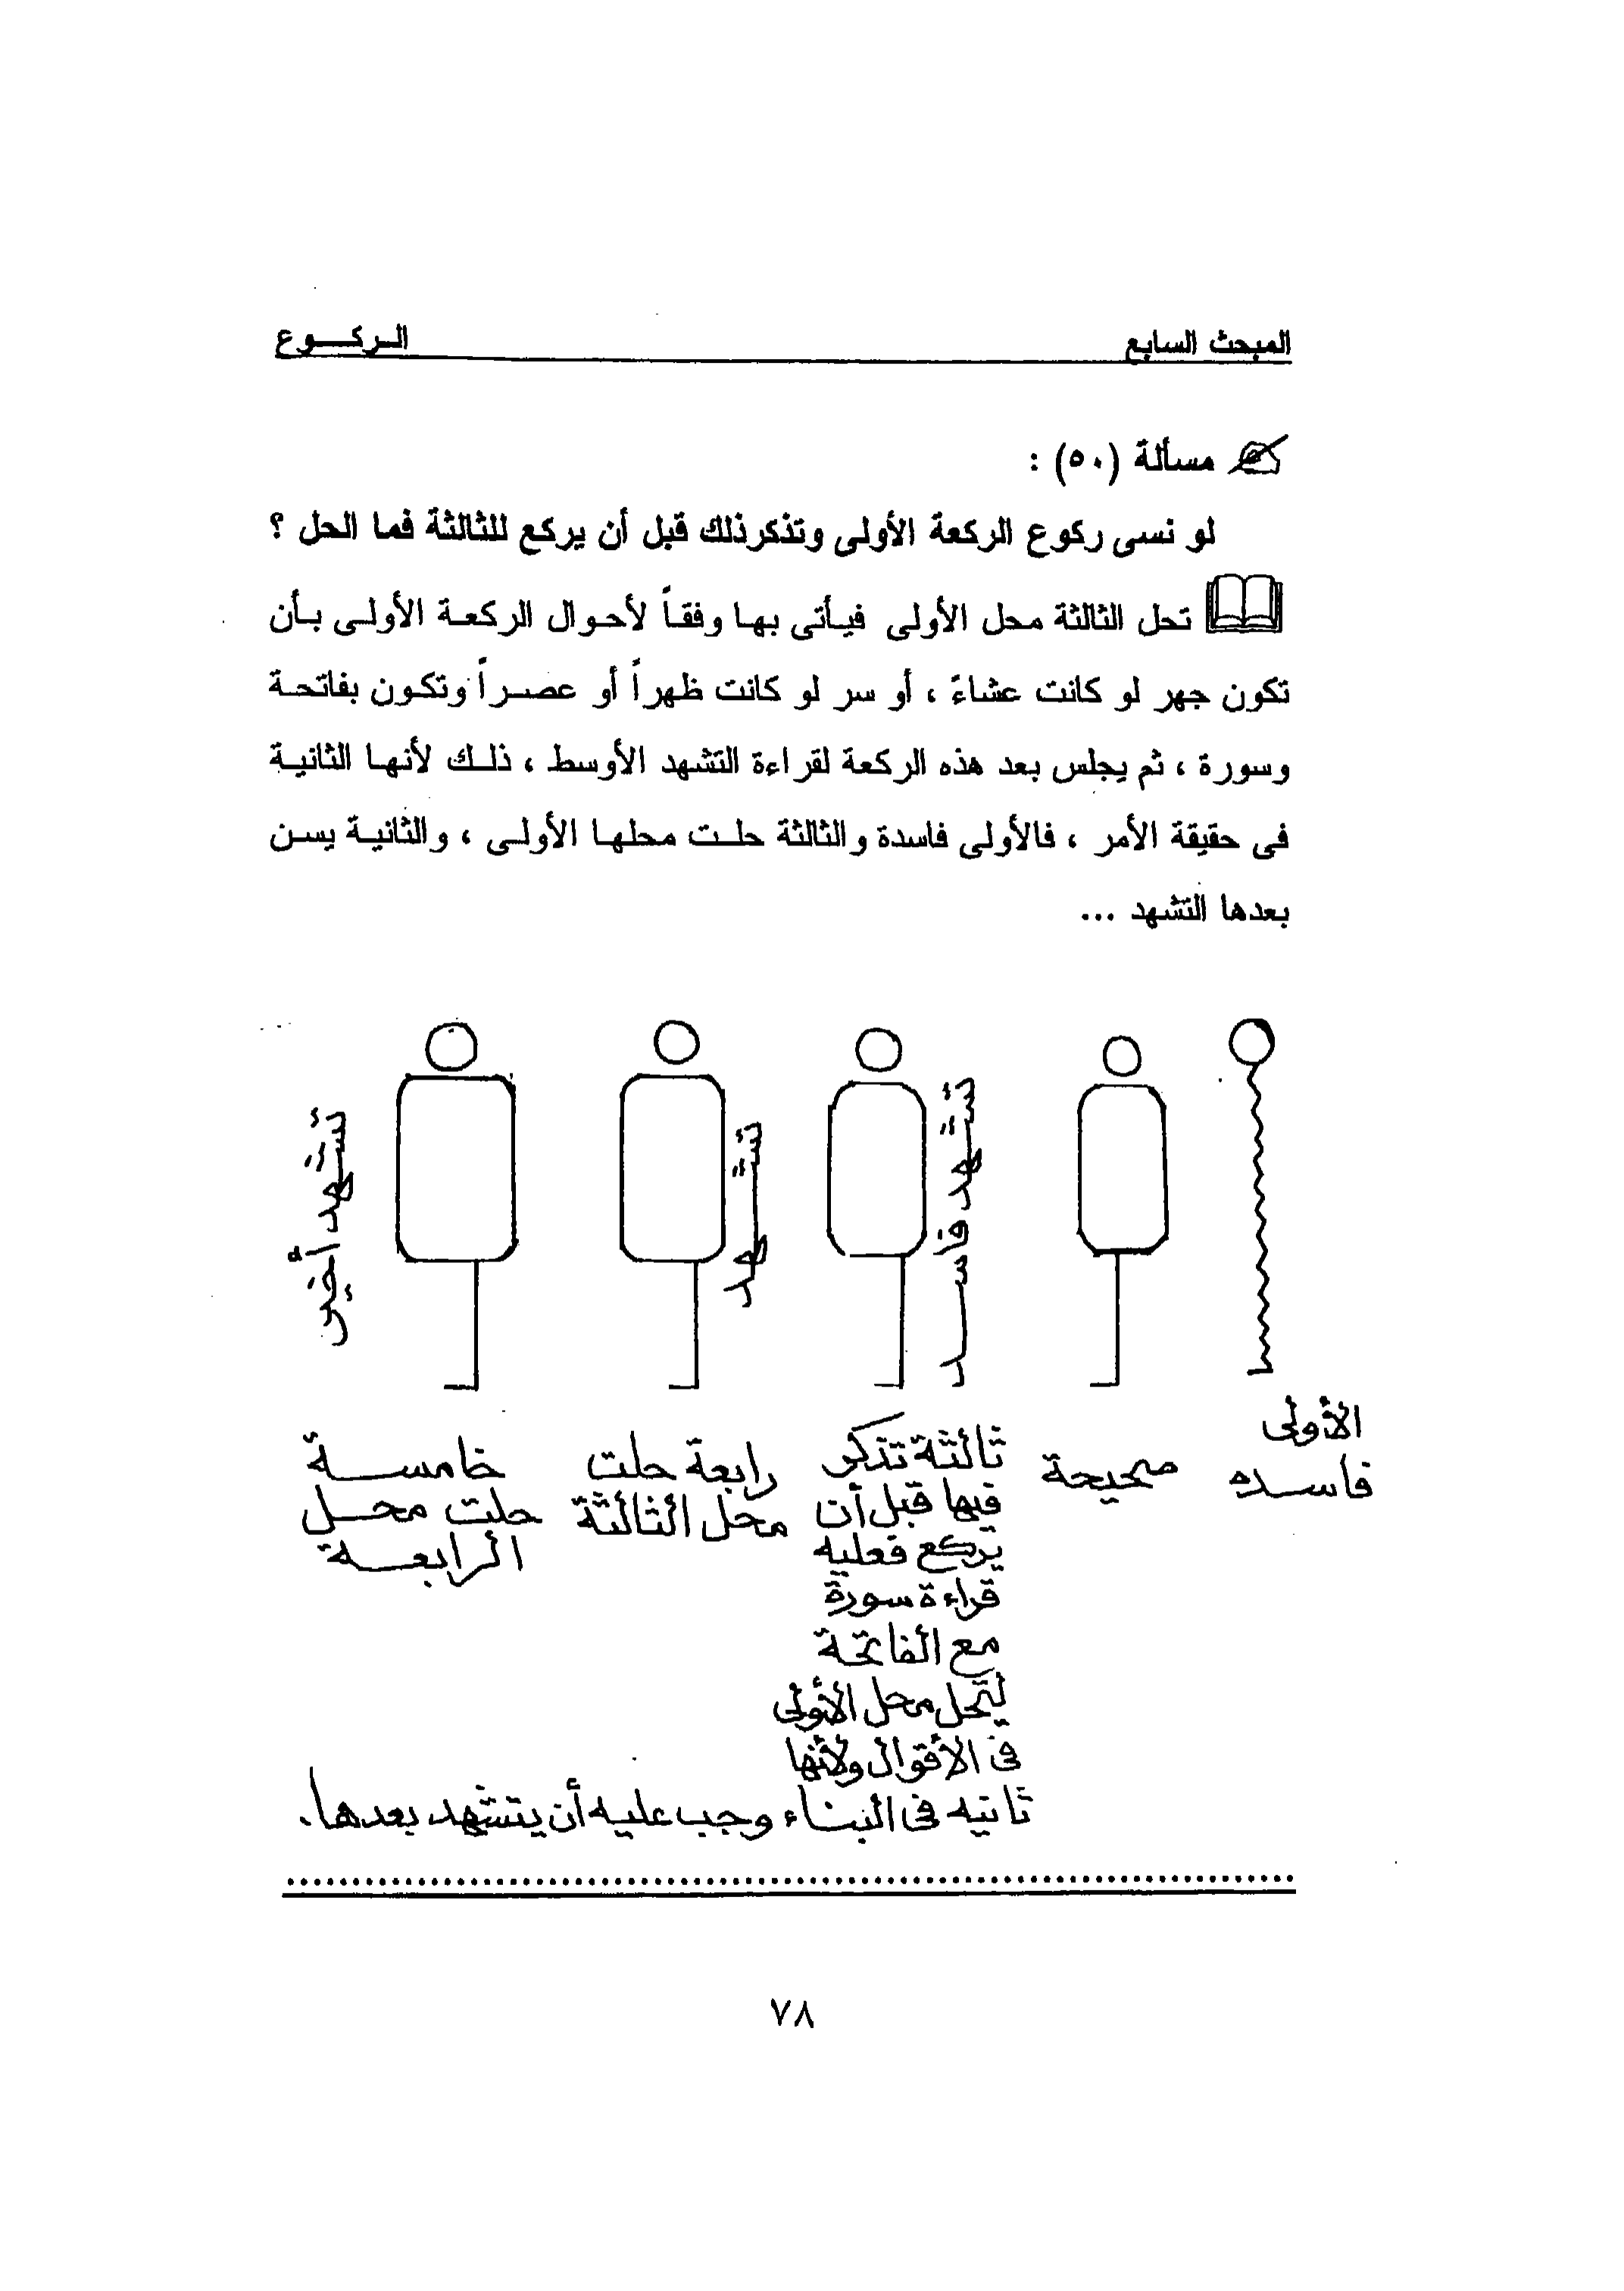 المبحث السابع الـركـــوع
مسألة (٥٠) :
لو نسى ركوع الركعة الأولى وتذكرذلك قبل أن يركع للثالثة فما الحل ؟
تحل الثالثة محل الأولى فيأتى بها وفقاً لأحوال الركعة الأولى بأن
تكون جهر لو كانت عشاءً ، أو سر لو كانت ظهراً أو عصراً وتكون بفاتحة
وسورة ، ثم يجلس بعد هذه الركعة لقراءة التشهد الأوسط ، ذلك لأنها الثانية
فى حقيقة الأمر ، فالأولى فاسدة والثالثة حلت محلها الأولى ، والثانية يسن
بعدها التشهد ...
تشهد فاسد
تشهد
تشهد أخير
الأولى
فاسده
صحيحة
ثالثة تذكر
فيها قبل أن
يركع فعليه
قراءة سورة
مع الفاتحة
لتحل محل الأولى
فى الأقوال ولأنها
ثانيه فى البناء وجب عليه أن يتشهد بعدها.
رابعة حلت
محل الثالثة
خامسة
حلت محل
الرابعة
٧٨